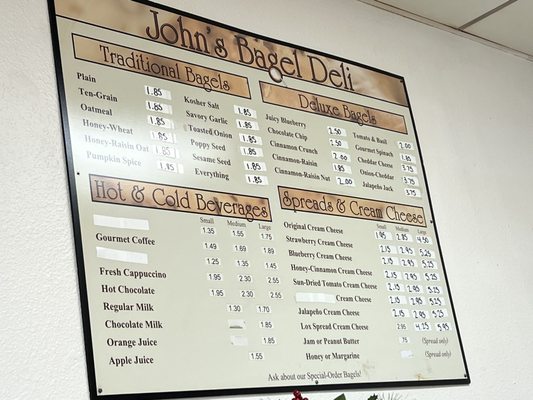 John's Bagel Deli
Traditional Bagels
Plain 1.85
Ten-Grain 1.85
Oatmeal 1.85
Honey-Wheat 1.85
Honey-Raisin Oat 1.85
Pumpkin Spice 1.85
Kosher Salt 1.85
Savory Garlic 1.85
Toasted Onion 1.85
Poppy Seed 1.85
Sesame Seed 1.85
Everything 1.85
Deluxe Bagels
Juicy Blueberry 2.50
Chocolate Chip 2.50
Cinnamon Crunch 2.00
Cinnamon-Raisin 1.85
Cinnamon-Raisin Nut 2.00
Tomato & Basil 2.00
Gourmet Spinach 1.85
Cheddar Cheese 1.85
Onion-Cheddar 3.75
Jalapeño Jack 3.75
Hot & Cold Beverages
Small Medium Large
1.35 1.55 1.75
Gourmet Coffee 1.49 1.69 1.89
1.25 1.35 1.45
Fresh Cappuccino 1.95 2.30 2.55
Hot Chocolate 1.95 2.30 2.55
Regular Milk 1.30 1.70
Chocolate Milk 1.85
Orange Juice 1.85
Apple Juice 1.55
Spreads & Cream Cheese
Small Medium Large
Original Cream Cheese 1.85 2.85 4.50
Strawberry Cream Cheese 2.15 2.95 5.25
Blueberry Cream Cheese 2.15 2.95 5.25
Honey-Cinnamon Cream Cheese 2.15 2.95 5.25
Sun-Dried Tomato Cream Cheese 2.15 2.95 5.25
Cream Cheese 2.15 2.95 5.25
Jalapeño Cream Cheese 2.15 2.95 5.25
Lox Spread Cream Cheese 2.95 4.25 5.95
Jam or Peanut Butter .75 (Spread only)
Honey or Margarine (Spread only)
Ask about our Special-Order Bagels!